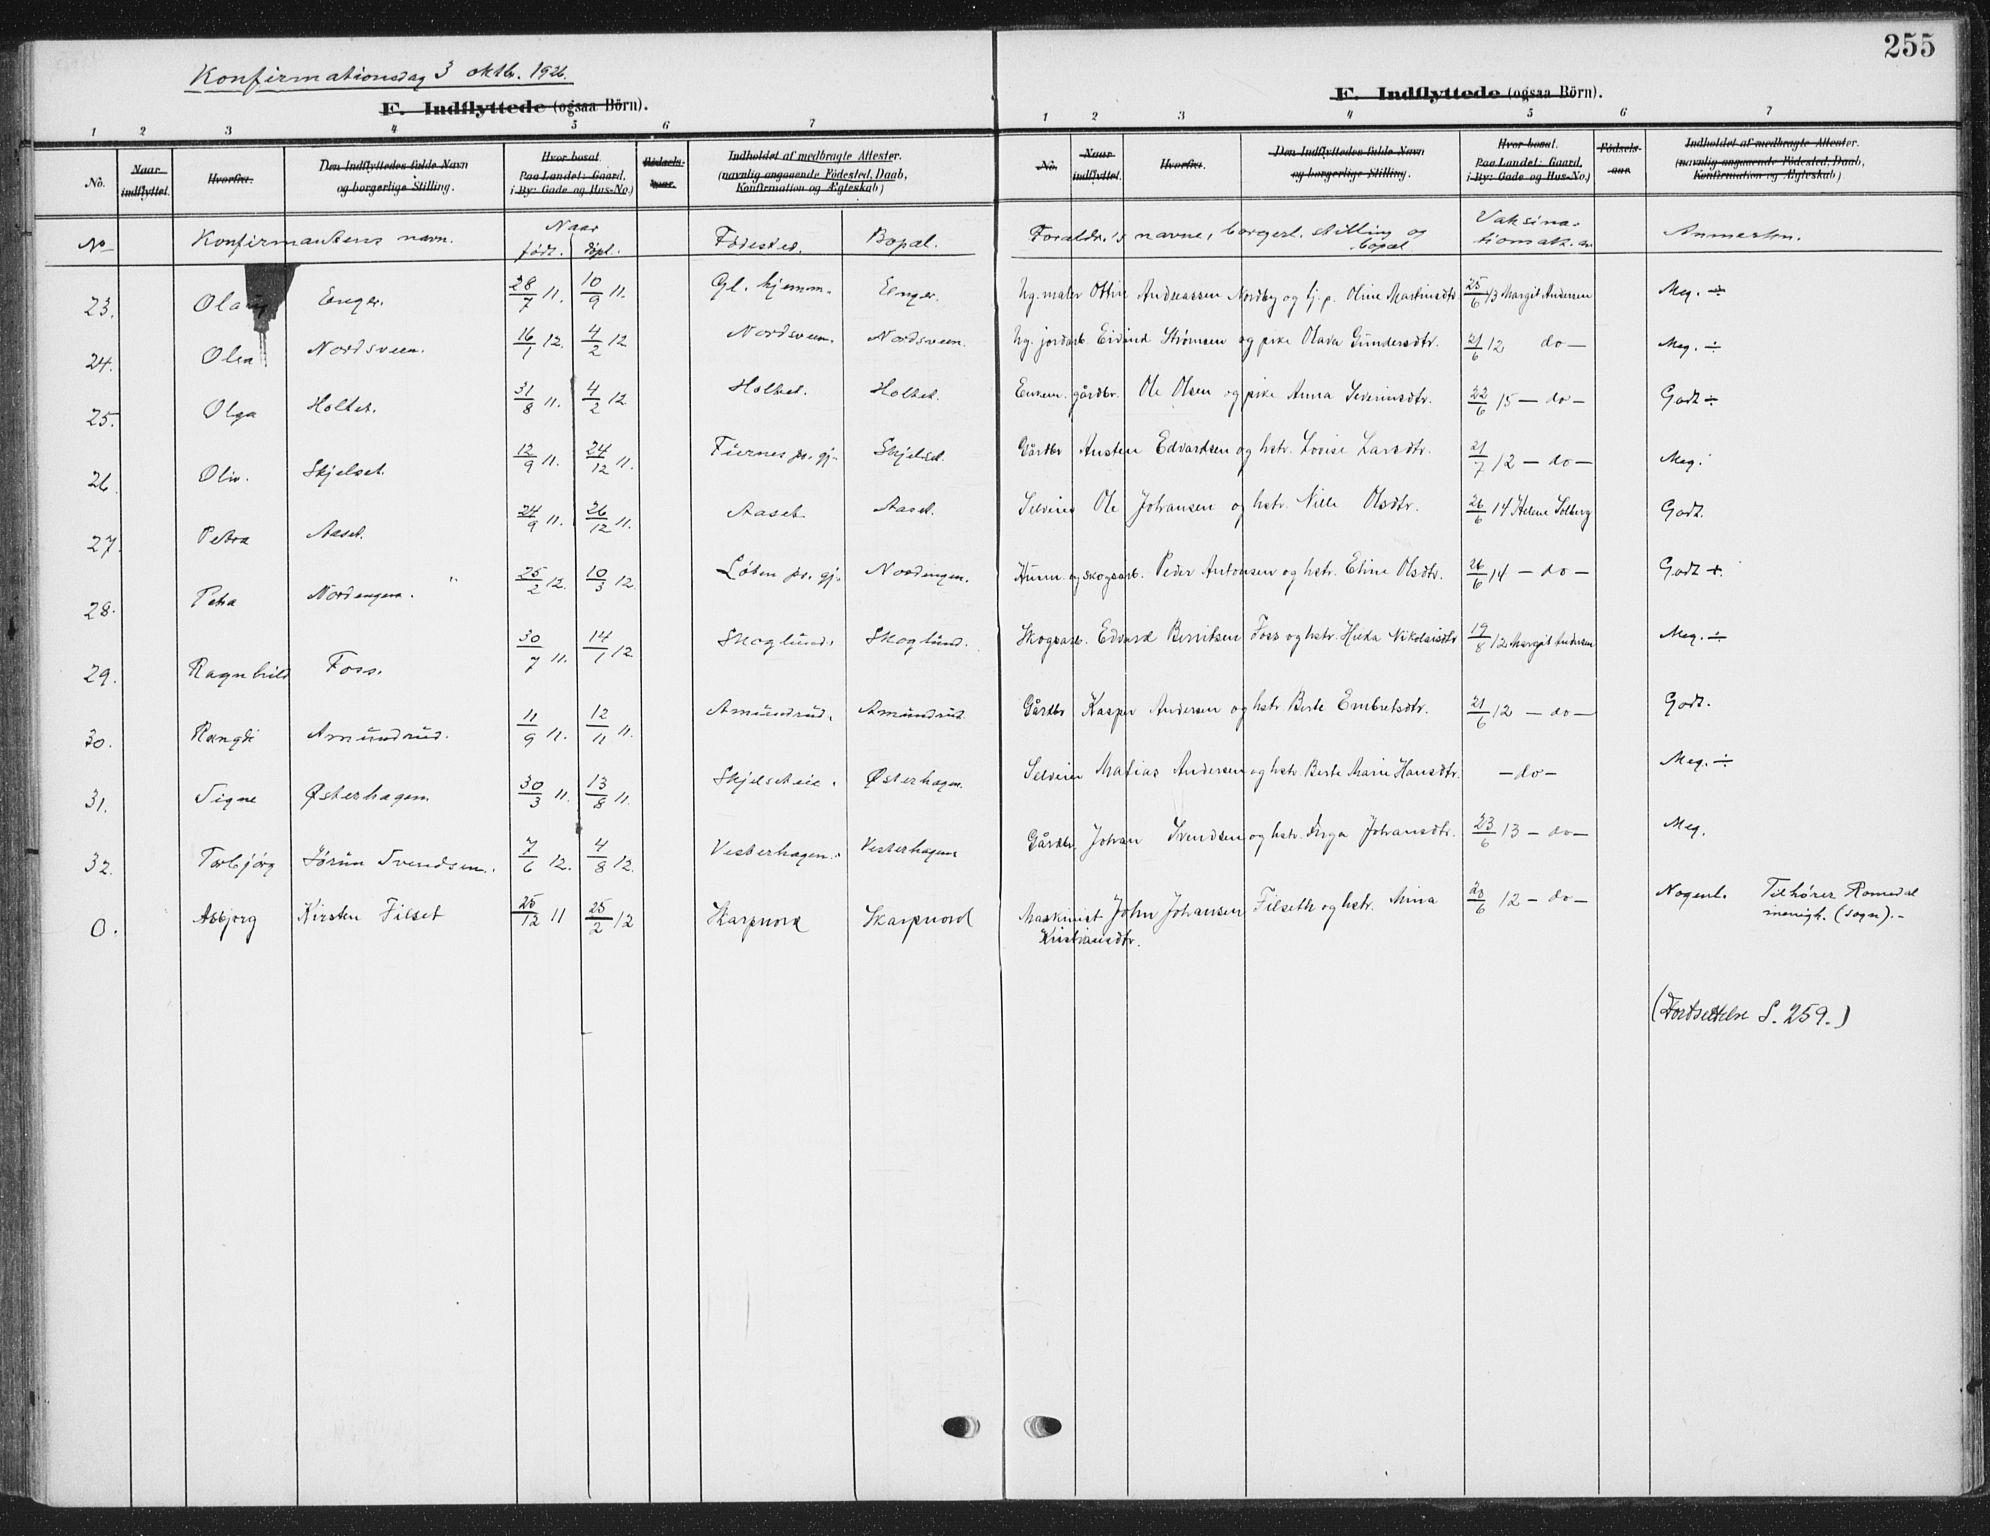 255
Konfirmationsdag 3 oktb. 1926.
F. Indflyttede (ogsaa Börn).
F. Indflyttede (ogsaa Börn).
1 2 3 4 5 6 7
1 2 3 4 5 6 7
No. Naar indflyttet. Hvorfra. Den Indflyttedes fulde Navn og borgerlige Stilling. Hvor bosat. Paa Landet: Gaard, i By: Gade og Hus-No.) Födsels-aar. Indholdet af medbragte Attester. (navnlig angaaende Födested, Daab, Konfirmation og Ægteskab)
No. Naar indflyttet. Hvorfra. Den Indflyttedes fulde Navn og borgerlige Stilling. Hvor bosat. Paa Landet: Gaard, i By: Gade og Hus-No.) Födsels-aar. Indholdet af medbragte Attester. (navnlig angaaende Födested, Daab, Konfirmation og Ægteskab)
No Konfirmantens navn. Naar født. døpt. Fødested. Bopæl. Forældr.'s navne, borgerl. stilling og bopæl Vaksinationsatt. Anmerkn.
23. Enger. 28/7 11. 10/9 11. Gl. hjemm. Enger. Ug. maler Ottin Andreassen Nordby og tj. p. Oline Martinsdtr. 25/6 13 Margit Andersen Meg. ÷
24. Olea Nordsveen. 16/1 12. 4/2 12 Nordsveen. Nordsveen. Ug. jordarb. Eivind Strømsen og pike Olava Gundersdtr. 21/6 12 do — Meg. ÷
25. Olga Holtet. 31/8 11. 4/2 12 Holtet. Holtet. Enkem. gårdbr. Ole Olsen og pike Anna Severinsdtr. 22/6 15 — do — Godt ÷
26. Oliv. Skjelset. 12/9 11. 24/12 11. Fürnes pr. gj. Skjelset. Gårdbr Austen Edvardsen og hstr. Lovise Larsdtr. 21/7 12 — do — Meg.
27. Petra Aaset. 24/9 11. 26/12 11. Aaset. Aaset. Selveier Ole Johansen og hstr. Nille Olsdtr. 26/6 14 Helene Solberg Godt.
28. Petra Nordengen. 25/2 12. 10/3 12. Løten pr. gj. Nordengen. Husm. og skogsarb. Peder Antonsen og hstr. Eline Olsdtr. 26/6 14 — do — Godt +.
29. Ragnhild Foss. 30/7 11. 14/1 12 Skoglund. Skoglund. Skogsarb. Edvard Berntsen Foss og hstr. Hilda Nikolaisdtr 19/8 12 Margit Andersen Meg. ÷
30. Rangdi Amundrud. 11/9 11. 12/11 11. Amundrud. Amundrud. Gårdbr Kasper Andersen og hstr Berte Embretsdtr. 21/6 12 — do — Godt.
31. Signe Østerhagen. 30/3 11. 13/8 11. Skjelseteie. Østerhagen. Selveier Matias Andersen og hstr. Berte Marie Hansdtr. — do — Meg. ÷
32. Torbjørg Jørun Svendsen. 7/6 12. 4/8 12. Vesterhagen. Vesterhagen Gårdbr. Johan Svendsen og hstr. Inga Johansdtr. 23/6 13 — do — Meg.
0. Asbjørg Kirsten Filset 25/12 11 25/2 12 Skarpnord Skarpnord Maskinist John Johansen Filseth og hstr. Mina 12 — do — Nogenl. Tilhører Romedal
Kristiansdtr. menigh. (sogn). —
(Fortsettelse S. 259.)